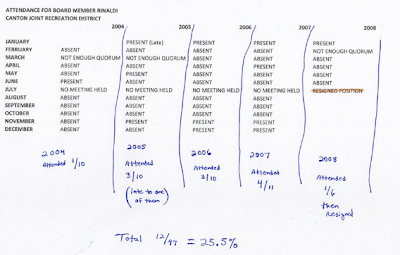 ATTENDANCE FOR BOARD MEMBER RINALDI
CANTON JOINT RECREATION DISTRICT
2004 2005 2006 2007 2008
JANUARY PRESENT (Late) PRESENT PRESENT PRESENT
FEBRUARY ABSENT ABSENT ABSENT PRESENT NOT ENOUGH QUORUM
MARCH NOT ENOUGH QUORUM NOT ENOUGH QUORUM ABSENT ABSENT ABSENT
APRIL ABSENT ABSENT ABSENT ABSENT ABSENT
MAY ABSENT PRESENT ABSENT ABSENT ABSENT
JUNE PRESENT ABSENT ABSENT ABSENT ABSENT
JULY NO MEETING HELD NO MEETING HELD NO MEETING HELD NO MEETING HELD RESIGNED POSITION
AUGUST ABSENT ABSENT ABSENT ABSENT
SEPTEMBER ABSENT ABSENT ABSENT ABSENT
OCTOBER ABSENT ABSENT ABSENT ABSENT
NOVEMBER ABSENT PRESENT PRESENT PRESENT
DECEMBER ABSENT ABSENT PRESENT PRESENT
2004 2005 2006 2007 2008
Attended 1/10 Attended Attended Attended Attended
3/10 3/10 4/11 1/6
(late to one of them) then Resigned
Total 12/47 = 25.5%